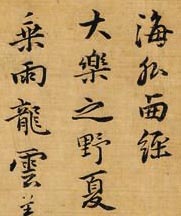 海外西經
大樂之野夏
乘兩龍雲